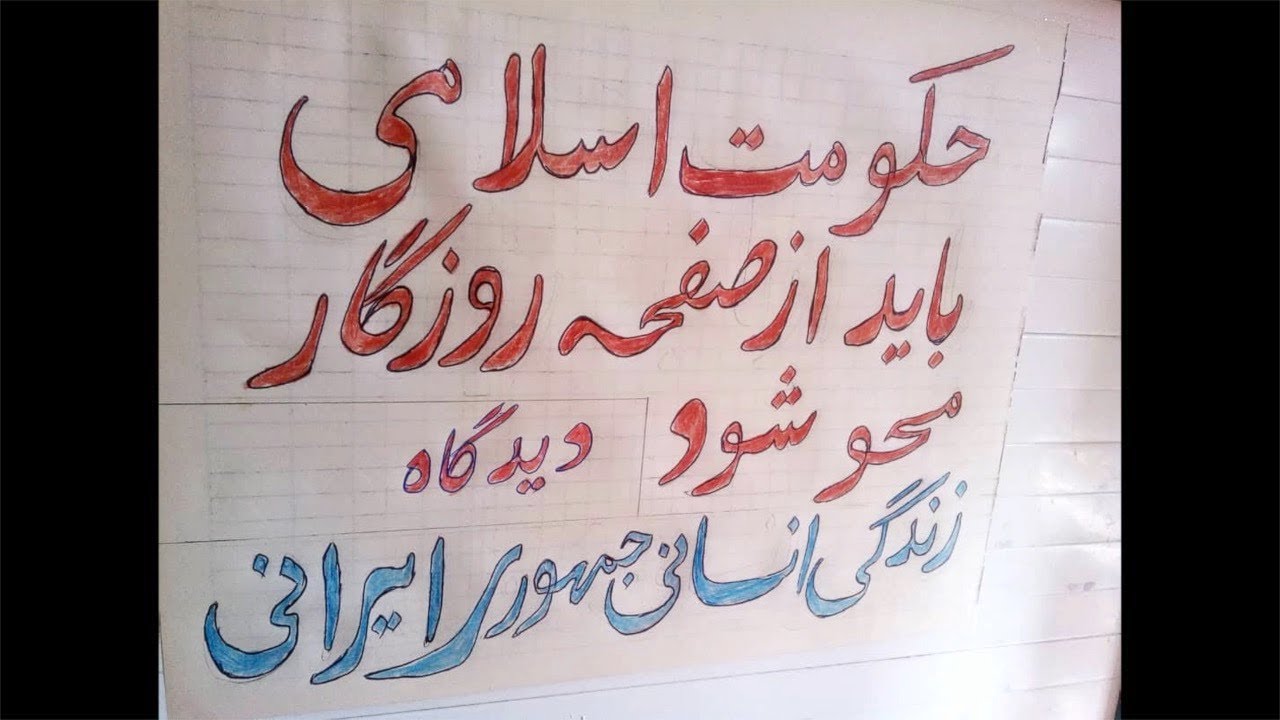 حکومت اسلامی
باید از صفحه روزگار
محو شود دیدگاه
زندگی انسانی جمهوری ایرانی